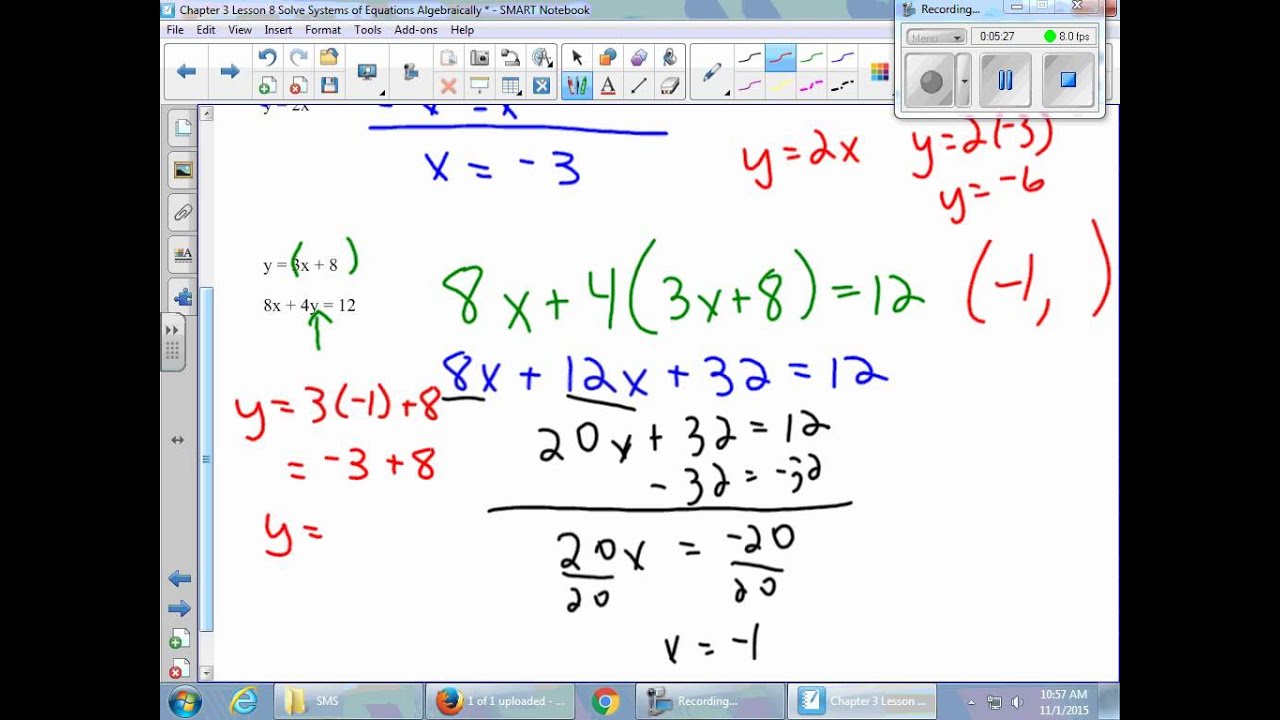 Chapter 3 Lesson 8 Solve Systems of Equations Algebraically * - SMART Notebook
Recording...
File Edit View Insert Format Tools Add-ons Help
Menu 0:05:27 8.0 fps
y = 2x
- x = -x
x = -3
y = 2x y = 2(-3)
y = -6
y = (3x + 8)
8x + 4y = 12
8x + 4(3x + 8) = 12 (-1, )
8x + 12x + 32 = 12
y = 3(-1) + 8
20x + 32 = 12
= -3 + 8
- 32 = -32
y =
20x = -20
20 20
x = -1
SMS
1 of 1 uploaded - ...
Recording...
Chapter 3 Lesson ...
10:57 AM
11/1/2015